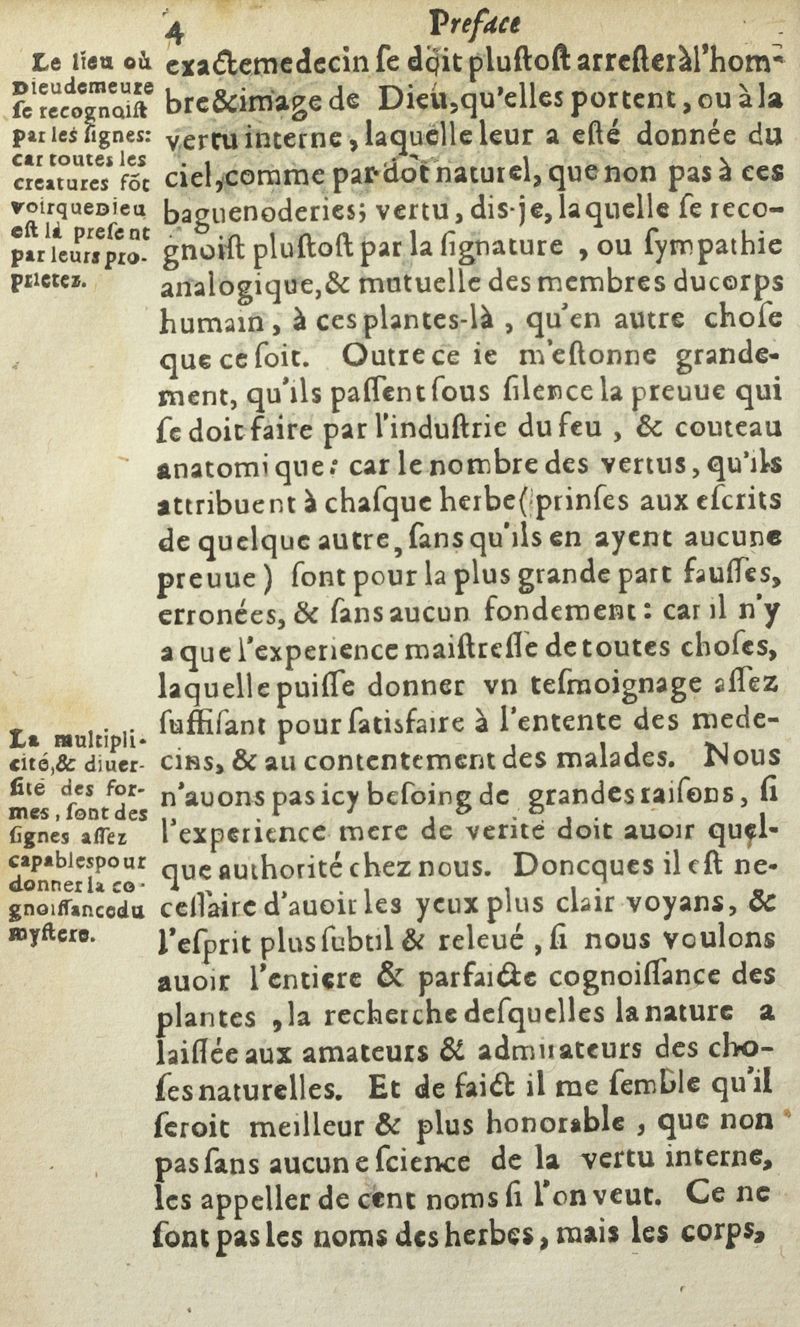 4 Preface
Le lieu où
Dieu demeure
ſe recognoiſt
par les ſignes:
car toutes les
creatures ſõt
voir que Dieu
eſt là preſent
par leurs pro-
prietez.
exacte medecin ſe doit pluſtoſt arreſter à l'hom-
bre & image de Dieu, qu'elles portent, ou à la
vertu interne, laquelle leur a eſté donnée du
ciel, comme par dot naturel, que non pas à ces
baguenoderies; vertu, dis-je, laquelle ſe reco-
gnoiſt pluſtoſt par la ſignature , ou ſympathie
analogique, & mutuelle des membres du corps
humain, à ces plantes-là , qu'en autre choſe
que ce ſoit. Outre ce ie m'eſtonne grande-
ment, qu'ils paſſent ſous ſilence la preuue qui
ſe doit faire par l'induſtrie du feu , & couteau
anatomique: car le nombre des vertus, qu'ils
attribuent à chaſque herbe ( prinſes aux eſcrits
de quelque autre, ſans qu'ils en ayent aucune
preuue ) ſont pour la plus grande part fauſſes,
erronées, & ſans aucun fondement: car il n'y
a que l'experience maiſtreſſe de toutes choſes,
laquelle puiſſe donner vn teſmoignage aſſez
ſuffiſant pour ſatisfaire à l'entente des mede-
cins, & au contentement des malades. Nous
n'auons pas icy beſoing de grandes raiſons, ſi
l'experience mere de verité doit auoir quel-
que authorité chez nous. Doncques il eſt ne-
ceſſaire d'auoir les yeux plus clair voyans, &
l'eſprit plus ſubtil & releué , ſi nous voulons
auoir l'entiere & parfaicte cognoiſſance des
plantes , la recherche deſquelles la nature a
laiſſée aux amateurs & admirateurs des cho-
ſes naturelles. Et de faict il me ſemble qu'il
ſeroit meilleur & plus honorable , que non
pas ſans aucune ſcience de la vertu interne,
les appeller de cent noms ſi l'on veut. Ce ne
ſont pas les noms des herbes, mais les corps,
La multipli-
cité, & diuer-
ſité des for-
mes, ſont des
ſignes aſſez
capables pour
donner la co-
gnoiſſance du
myſtere.